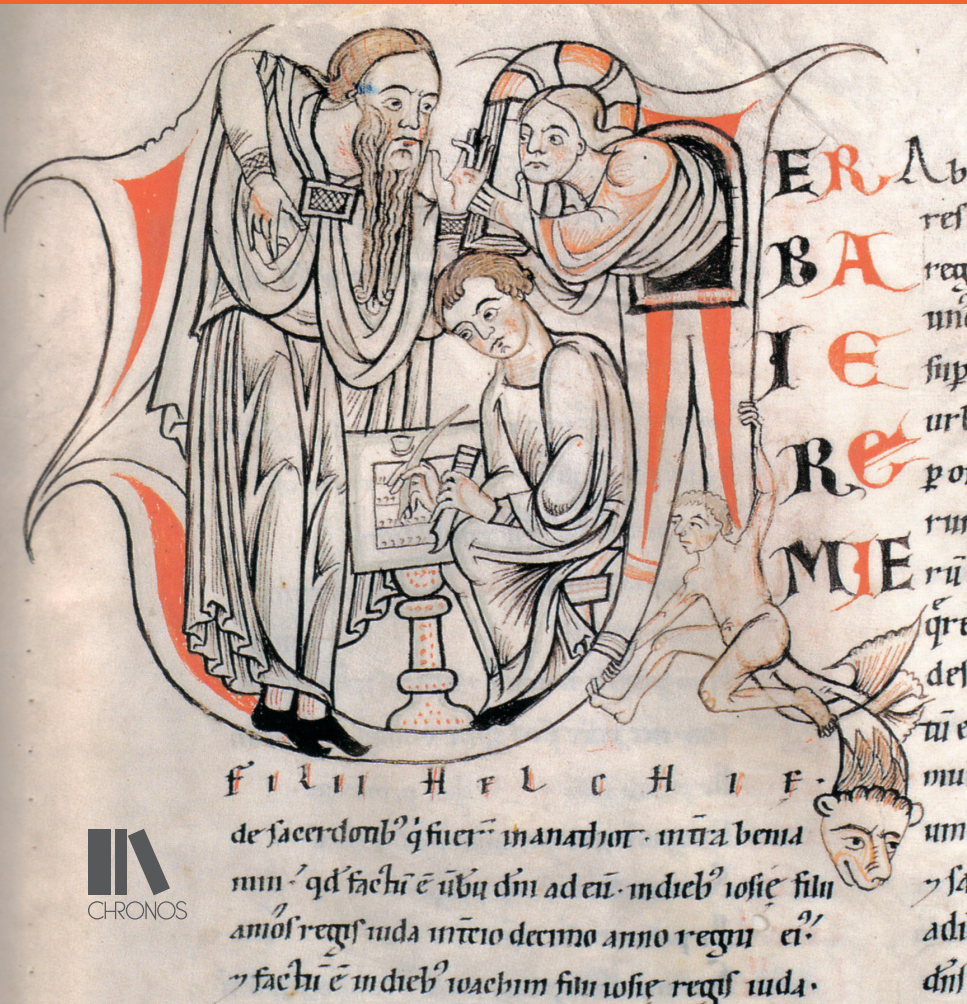 V
ER
BA
IE
RE
MIE
FILII HELCHIE.
de sacerdotib⁹ q̇ fueř inanathot· intīra benia
min· qđ factū ē ūbū dnī ad eū· indieb⁹ iosię filii
amos regis iuda intcio decimo anno regni ei⁹·
⁊ factū ē indieb⁹ ioachim filii iosię regis iuda·
Ab
res
reg
sup
urb
rum
rū
q̊re
des
tū e
mu
um
⁊ sa
adi
dn̄s
CHRONOS